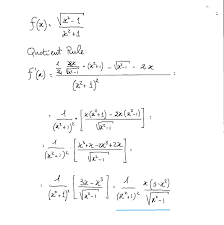 f(x) = √(x²-1) / (x²+1)
Quotient Rule:
f'(x) = (1/2 · 2x/√(x²-1) · (x²+1) - √(x²-1) · 2x) / (x²+1)² =
= 1/(x²+1)² [ (x(x²+1) - 2x(x²-1)) / √(x²-1) ] =
= 1/(x²+1)² [ (x³+x-2x³+2x) / √(x²-1) ] =
= 1/(x²+1)² [ (3x-x³) / √(x²-1) ] = 1/(x²+1)² x(3-x²)/√(x²-1)